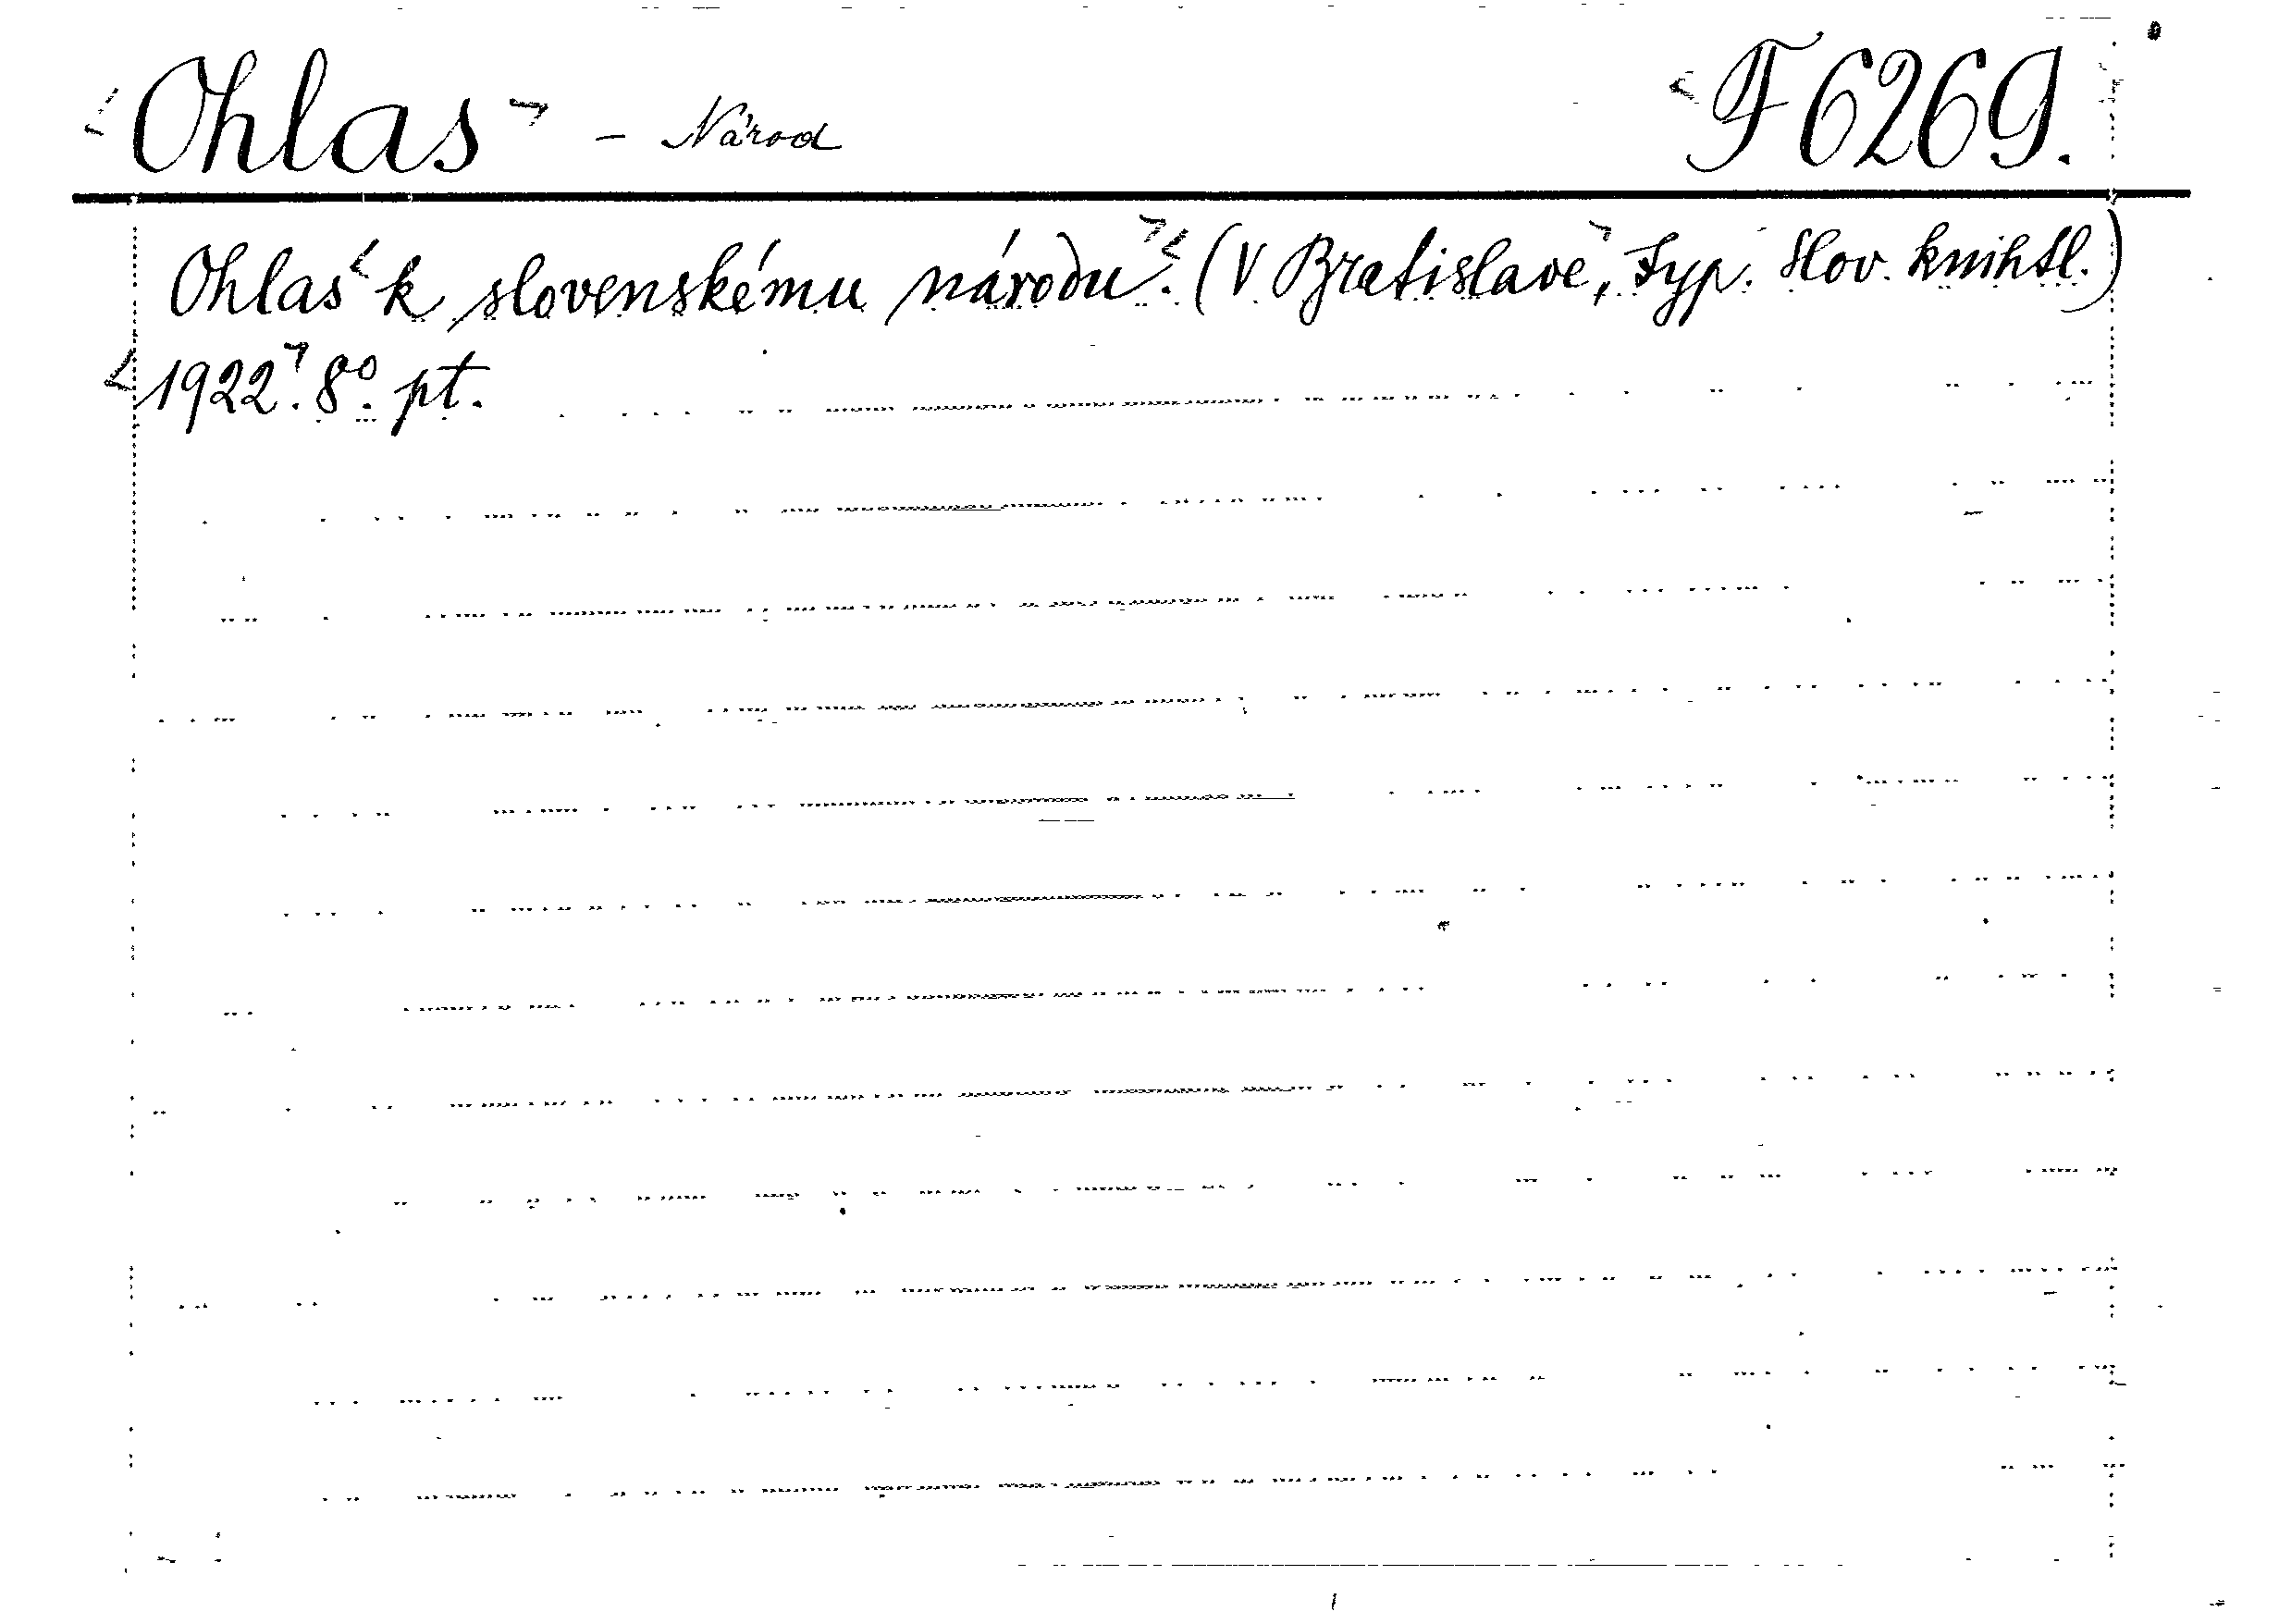 Ohlas - Národ F 6269.
Ohlas k slovenskému národu. (V Bratislavě, Typ. Slov. knihtl.)
1922. 8° pt.